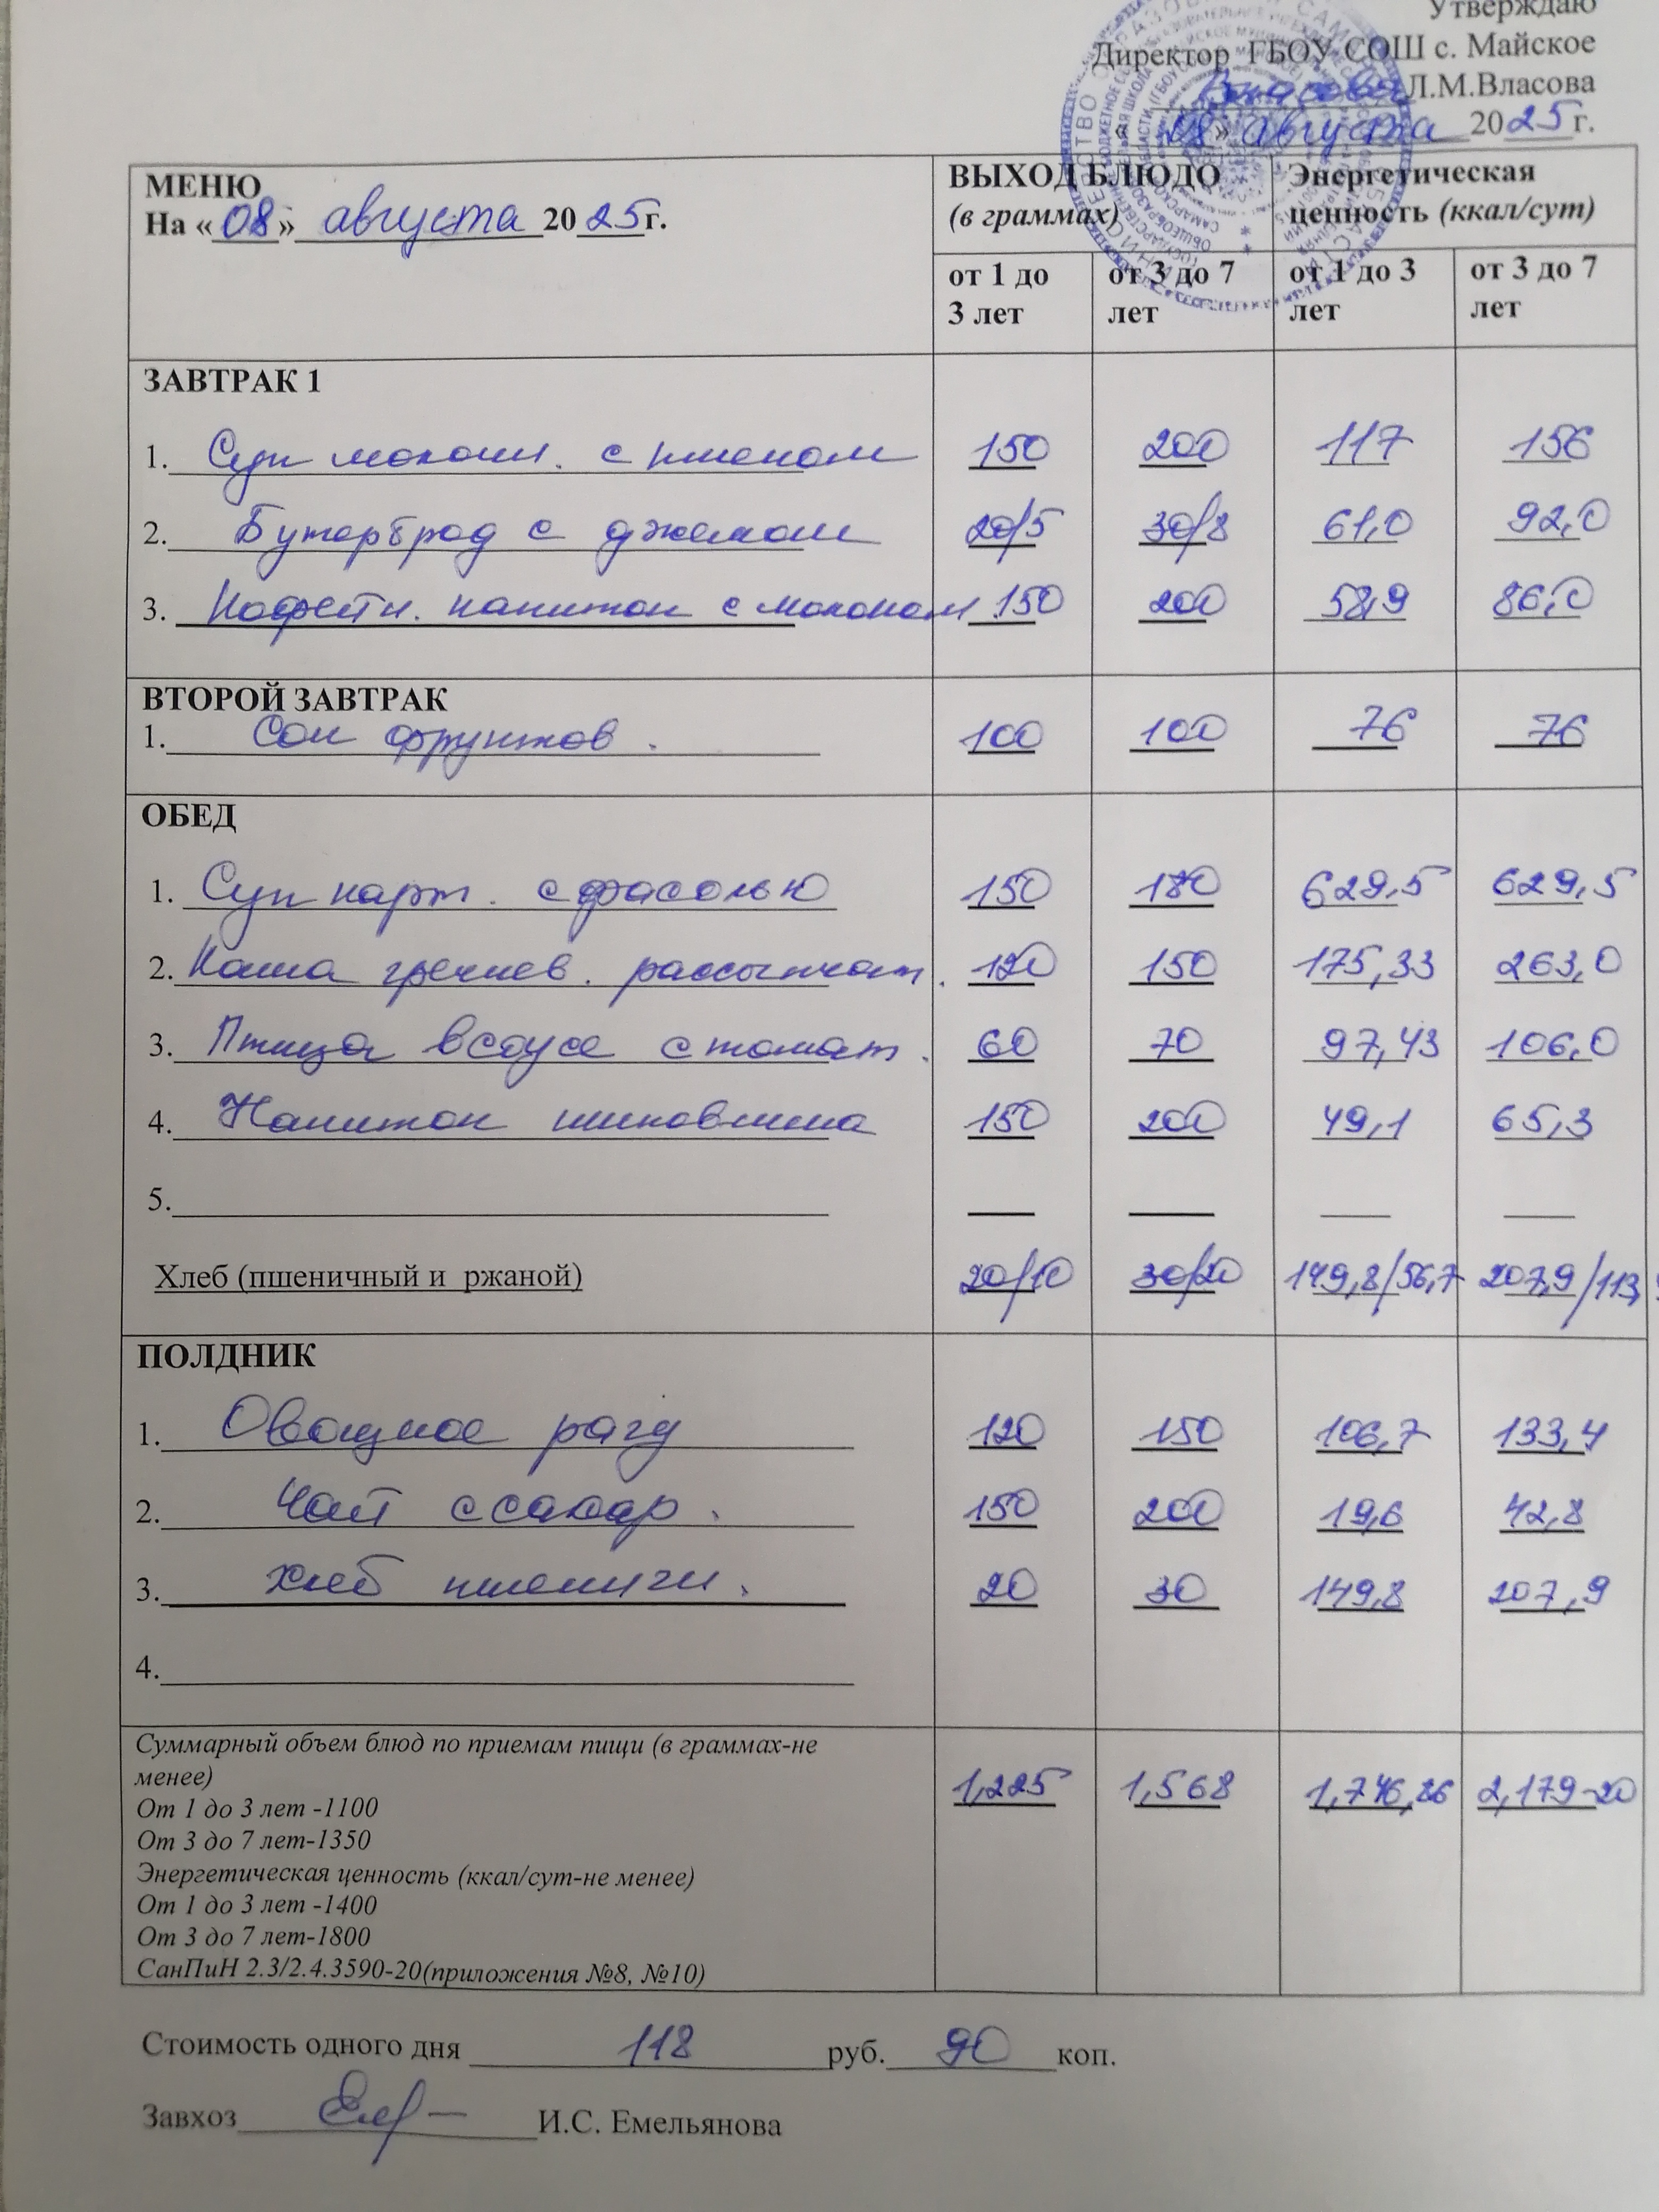 Утверждаю
Директор ГБОУ СОШ с. Майское
Власова Л.М.Власова
«08» августа 2025г.
МЕНЮ
На «08» августа 2025г.
ВЫХОД БЛЮДО
(в граммах)
Энергетическая
ценность (ккал/сут)
от 1 до
3 лет
от 3 до 7
лет
от 1 до 3
лет
от 3 до 7
лет
ЗАВТРАК 1
1. Суп молочн. с пшеном 150 200 117 156
2. Бутерброд с джемом 20/5 30/8 61,0 92,0
3. Кофейн. напиток с молоком 150 200 58,9 86,0
ВТОРОЙ ЗАВТРАК
1. Сок фруктов. 100 100 76 76
ОБЕД
1. Суп карт. с фасолью 150 180 629,5 629,5
2. Каша гречнев. рассыпчат. 120 150 175,33 263,0
3. Птица в соусе с томат. 60 70 97,43 106,0
4. Напиток шиповника 150 200 49,1 65,3
5.
Хлеб (пшеничный и ржаной) 20/10 30/20 149,8/56,7 207,9/113,
ПОЛДНИК
1. Овощное рагу 120 150 106,7 133,4
2. Чай с сахар. 150 200 19,6 42,8
3. Хлеб пшеничн. 20 30 149,8 207,9
4.
Суммарный объем блюд по приемам пищи (в граммах-не
менее)
От 1 до 3 лет -1100
От 3 до 7 лет-1350
Энергетическая ценность (ккал/сут-не менее)
От 1 до 3 лет -1400
От 3 до 7 лет-1800
СанПиН 2.3/2.4.3590-20(приложения №8, №10)
1,225 1,568 1,746,86 2,179-20
Стоимость одного дня 118 руб. 90 коп.
Завхоз И.С. Емельянова